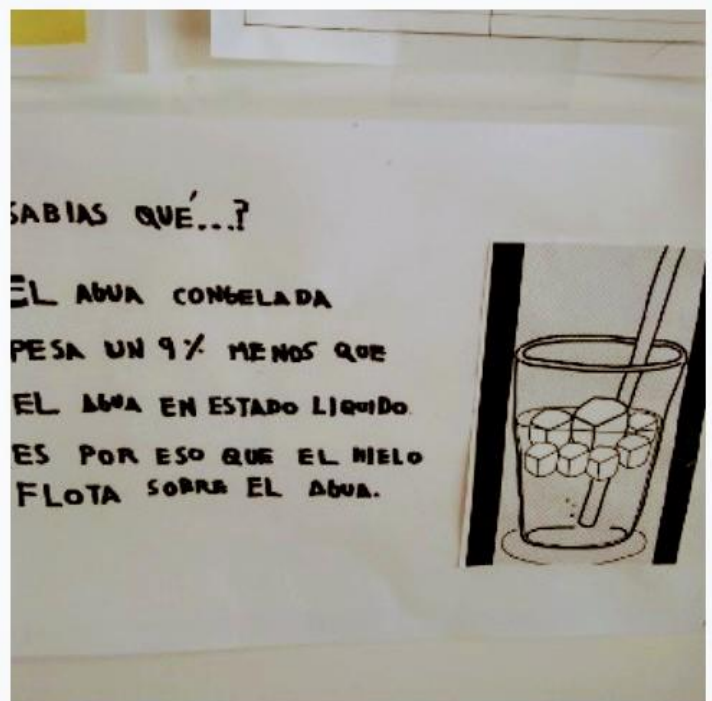 SABIAS QUÉ...?
EL AGUA CONGELADA
PESA UN 9% MENOS QUE
EL AGUA EN ESTADO LIQUIDO.
ES POR ESO QUE EL HIELO
FLOTA SOBRE EL AGUA.